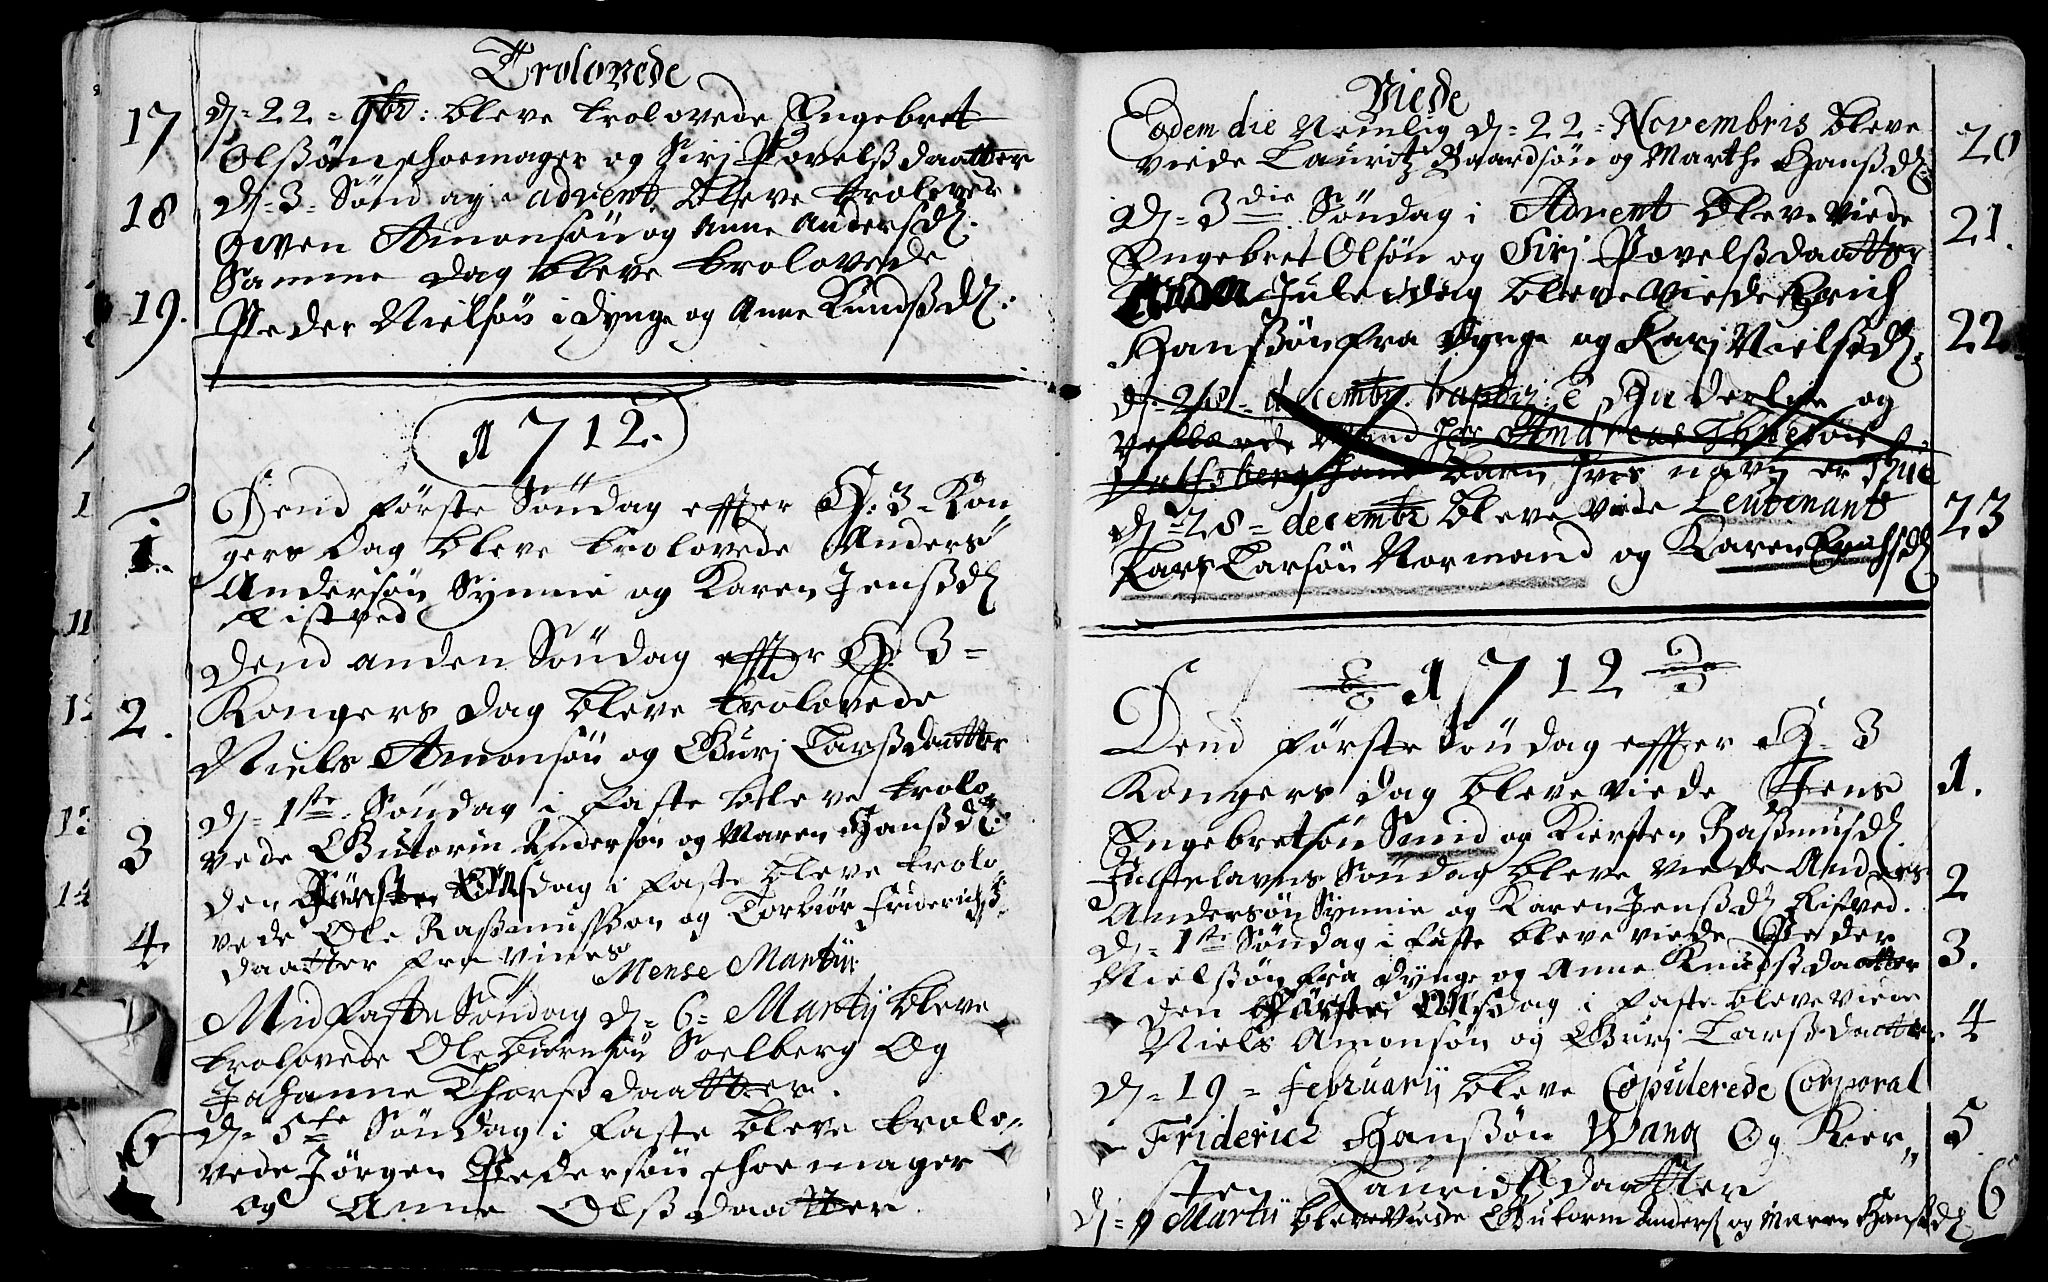 Trolovede
17 d. 22 = 9br: bleve trolovede Engebret
Olssøn skoemager og Siri Povelssdaatter
18 d. 3 = Søndag i advent bleve trolovede
Gwen Amonsøn og Anne Andersd.
Samme dag bleve trolovede
19. Peder Nielsøn i dynge og Anne Knudssd.
1712.
Dend første Søndag effter H. 3 = Kon
1. gers dag bleve trolovede Anders
Andersøn Synnie og Karen Jenssd
Kistved
Dend anden Søndag effter H. 3 =
2. Kongers dag bleve trolovede
Niels Amonsøn og Guri Larssdaatter
d. 1ste Søndag i faste bleve trolo
3 vede Gutorm Andersøn og Maren Hanssd.
den første Onsdag i faste bleve trolo
4. vede Ole Rassmussøn og Torbiør Friderichs
daatter fra vines
Mense Martii
Midfaste Søndag d. 6 = Martij bleve
trolovede Ole Biørnsøn Soelberg Og
Johanne Thorssdaatter.
6 d. 5te Søndag i faste bleve trolo=
vede Jørgen Pedersøn skoemager
og Anne Olssdaatter.
Viede
Eodem die Nemlig d. 22 = Novembris bleve 20
viede Lauritz Baardsøn og Marthe Hanssd.
d. 3die Søndag i Advent bleve viede 21.
Engebret Olsøn og Siri Povelssdaatter
Anden Juledag bleve viede Erich
Hanssøn fra dynge og Kari Nielssd. 22.
d. 28 = decembr. baptiz: e Hæderlige og
vellærde Mand Hr Andreas Thuesøn
barn hvis navn er Thue
d. 28 = decembr bleve viede Leutenant 23
Lars Larsøn Normand og Karen Erichsd
1712
Dend første Søndag effter H. 3
Kongers dag bleve viede Jens 1.
Engebretsøn Smid og Kiersten Rassmusd.
Fastelavns Søndag bleve viede Anders 2
Andersøn Synnie og Karen Jenssd Kistved.
d. 1ste Søndag i faste bleve viede Peder 3.
Nielssøn fra dynge og Anne Knudssdaatter
den første Onsdag i faste bleve viede
Niels Amonsøn og Guri Larssdaatter. 4
d. 19 = februarij bleve Copulerede Corporal
Friderich Hanssøn Wang Og Kier„ 5
sten Lauridssdaatter
d. 9 Martii bleve viede Gutorm Anders og Maren Hanssd 6